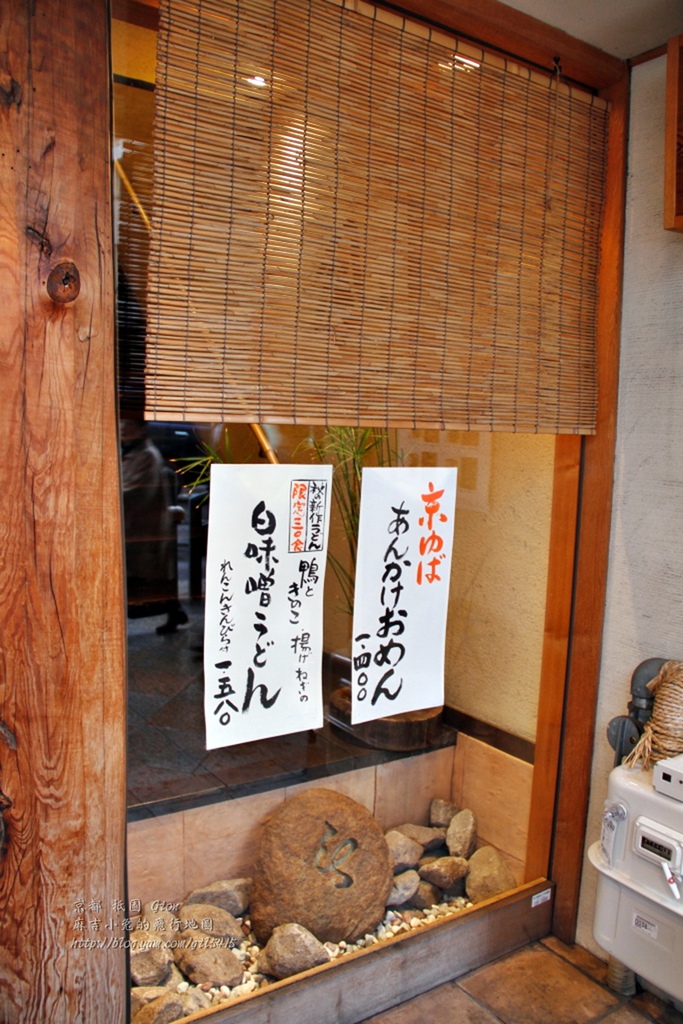 京ゆば
あんかけおめん
一.四〇〇
秋の新作うどん
限定三〇食
鴨と
きのこ・揚げねぎの
白味噌うどん
れんこんきんぴら付
一.五八〇
京都 祇園 Gion
麻吉小兔的飛行地圖